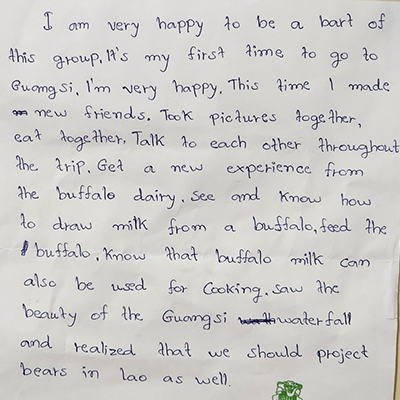 I am very happy to be a bart of
this group, It's my first time to go to
Guangsi, I'm very happy. This time I made
new friends. Took pictures together,
eat together, Talk to each other throughout
the trip. Get a new experience from
the buffalo dairy. see and know how
to draw milk from a buffalo, feed the
buffalo, know that buffalo milk can
also be used for cooking. saw the
beauty of the Guangsi waterfall
and realized that we should project
bears in lao as well.